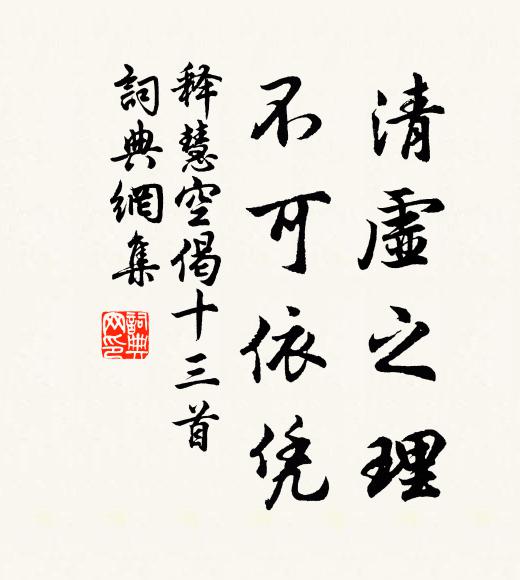 清虛之理
不可依凭
释慧空偈十三首
詞典網集
詞典網印